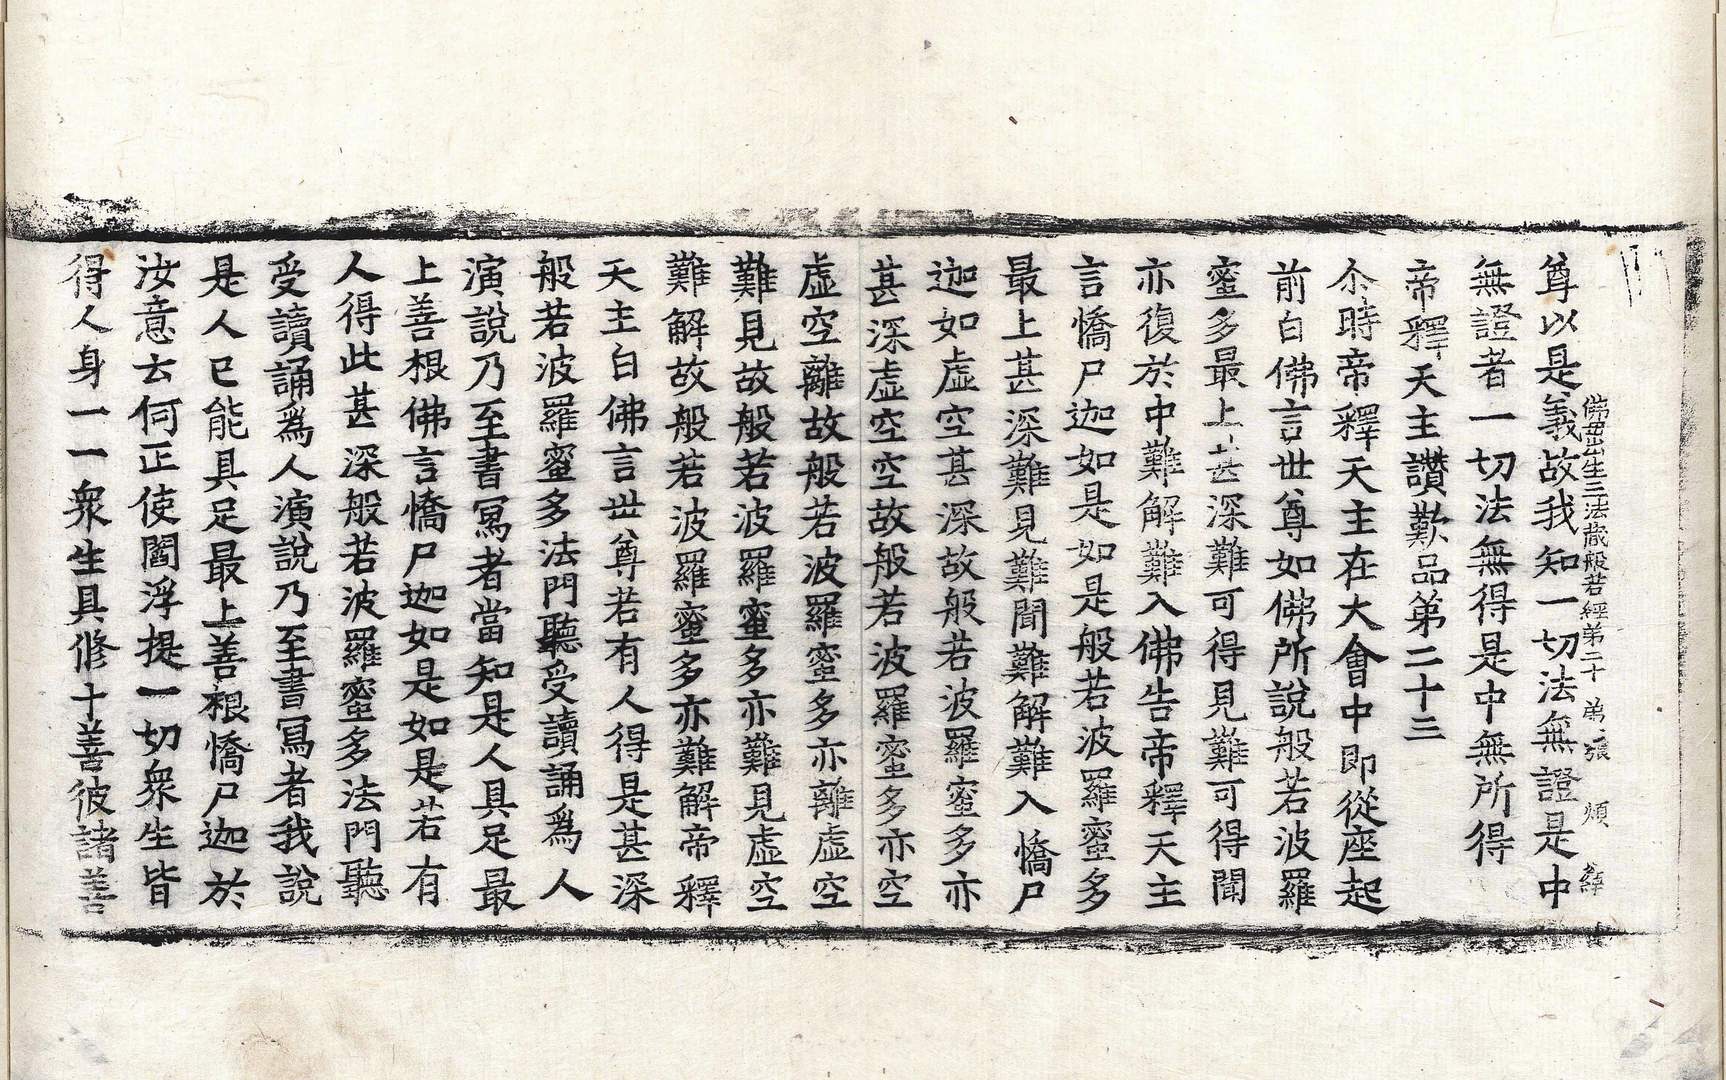 佛母出生三法藏般若經第二十　第二張　煩
尊以是義故我知一切法無證是中
無證者一切法無得是中無所得
帝釋天主讚歎品第二十三
尒時帝釋天主在大會中即從座起
前白佛言世尊如佛所說般若波羅
蜜多最上甚深難可得見難可得聞
亦復於中難解難入佛告帝釋天主
言憍尸迦如是如是般若波羅蜜多
最上甚深難見難聞難解難入憍尸
迦如虛空甚深故般若波羅蜜多亦
甚深虛空空故般若波羅蜜多亦空
虛空離故般若波羅蜜多亦離虛空
難見故般若波羅蜜多亦難見虛空
難解故般若波羅蜜多亦難解帝釋
天主白佛言世尊若有人得是甚深
般若波羅蜜多法門聽受讀誦爲人
演說乃至書冩者當知是人具足最
上善根佛言憍尸迦如是如是若有
人得此甚深般若波羅蜜多法門聽
受讀誦爲人演說乃至書冩者我說
是人已能具足最上善根憍尸迦於
汝意云何正使閻浮提一切衆生皆
得人身一一衆生具修十善彼諸善